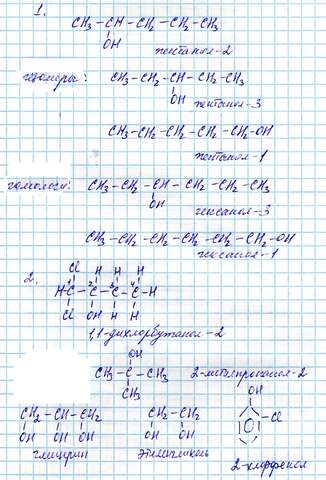 1.
CH₃-CH-CH₂-CH₂-CH₃
OH
пентанол-2
изомеры: CH₃-CH₂-CH-CH₂-CH₃
OH
пентанол-3
CH₃-CH₂-CH₂-CH₂-CH₂-OH
пентанол-1
гомологи: CH₃-CH₂-CH-CH₂-CH₂-CH₃
OH
гексанол-3
CH₃-CH₂-CH₂-CH₂-CH₂-CH₂-OH
гексанол-1
2.
Cl H H H
H-C¹-C²-C³-C⁴-H
Cl OH H H
1,1-дихлорбутанол-2
OH
CH₃-C-CH₃
CH₃
2-метилпропанол-2
CH₂-CH-CH₂
OH OH OH
глицерин
CH₂-CH₂
OH OH
этиленгликоль
OH
-Cl
2-хлорфенол